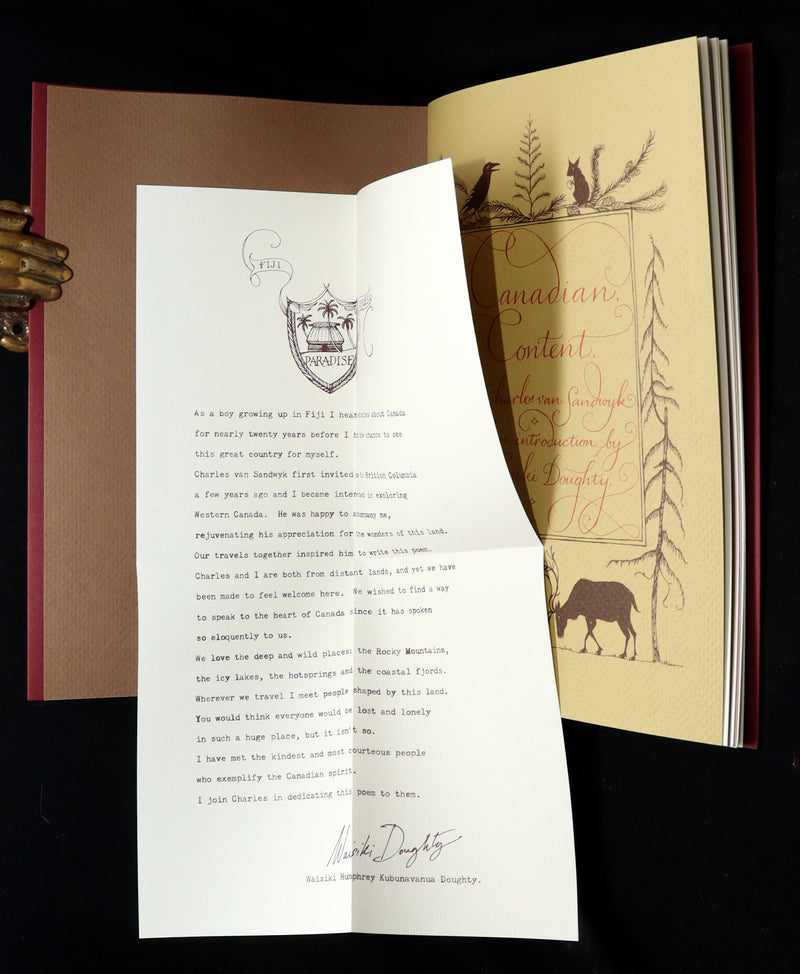 FIJI
PARADISE
As a boy growing up in Fiji I hear stories about Canada
for nearly twenty years before I had the chance to see
this great country for myself.
Charles van Sandwyk first invited me to British Columbia
a few years ago and I became interested in exploring
Western Canada. He was happy to accompany me,
rejuvenating his appreciation for the wonders of this land.
Our travels together inspired him to write this poem.
Charles and I are both from distant lands, and yet we have
been made to feel welcome here. We wished to find a way
to speak to the heart of Canada since it has spoken
so eloquently to us.
We love the deep and wild places: the Rocky Mountains,
the icy lakes, the hotsprings and the coastal fjords.
Wherever we travel I meet people shaped by this land.
You would think everyone would be lost and lonely
in such a huge place, but it isn't so.
I have met the kindest and most courteous people
who exemplify the Canadian spirit.
I join Charles in dedicating this poem to them.
Waisiki Doughty
Waisiki Humphrey Kubunavanua Doughty.
Canadian.
Content.
Charles van Sandwyk
introduction by
Doughty.